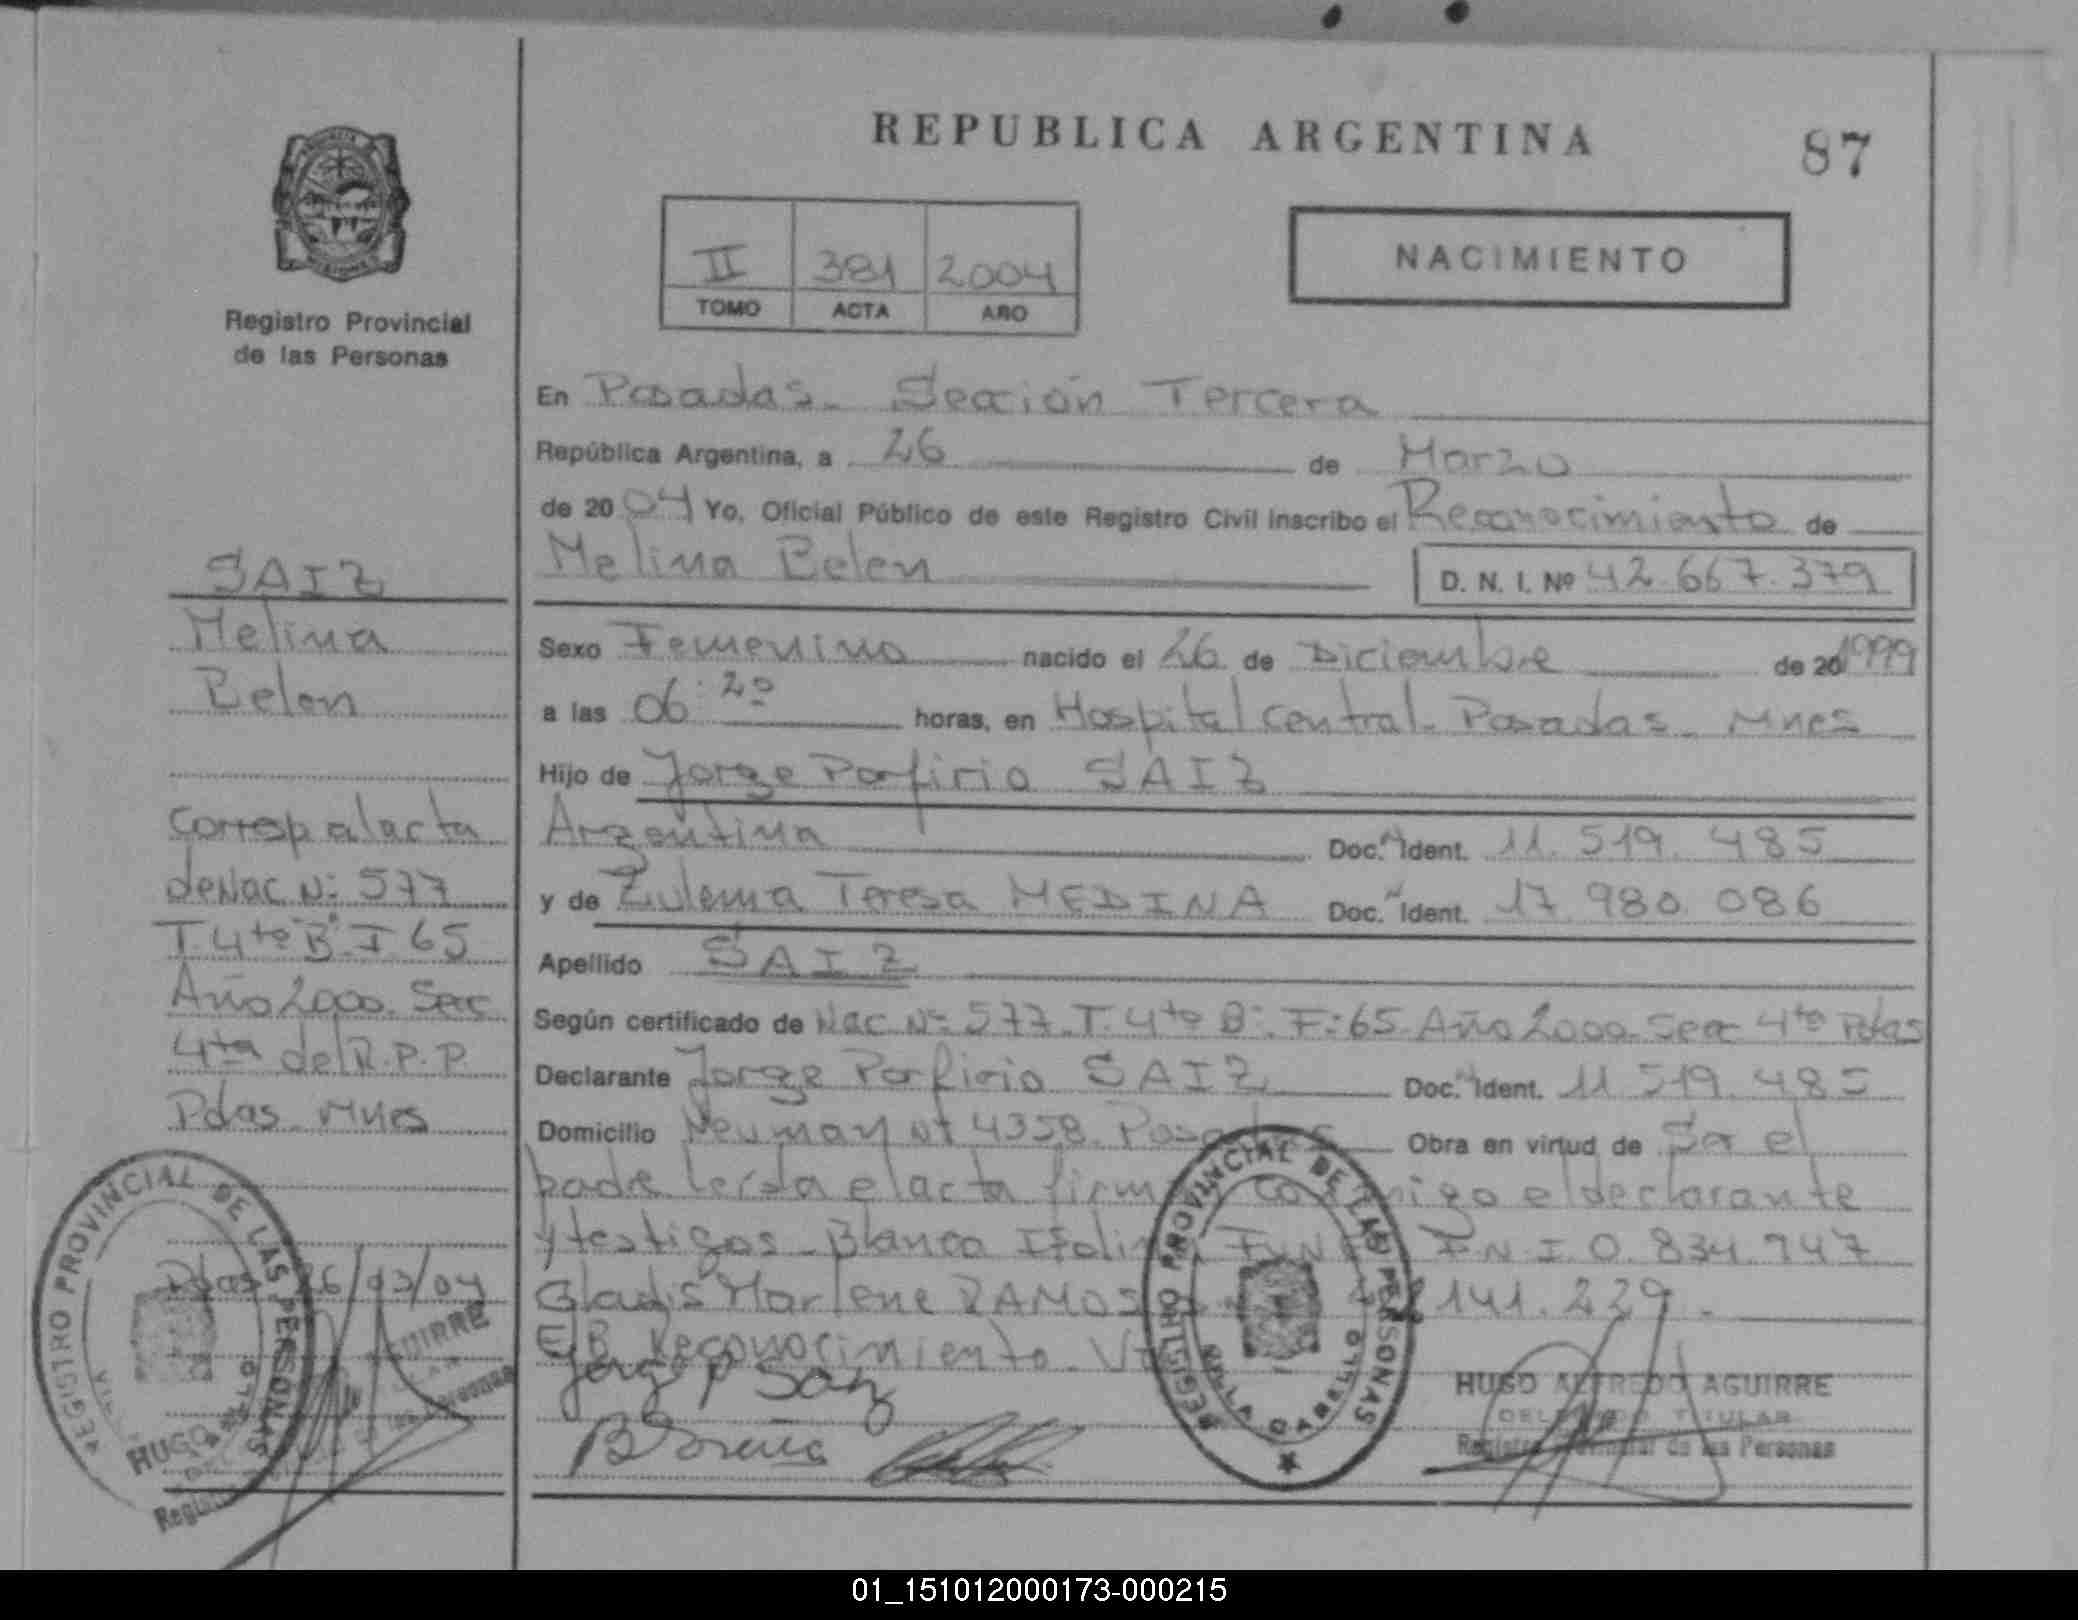 REPUBLICA ARGENTINA
87
Registro Provincial
de las Personas
II 381 2004
TOMO ACTA AÑO
NACIMIENTO
En Posadas. Sección Tercera
República Argentina, a 26 de Marzo
de 2004 Yo, Oficial Público de este Registro Civil inscribo el Reconocimiento de
Melina Belen D. N. I. Nº 42.667.379
Sexo Femenino nacido el 26 de Diciembre de 20 1999
a las 06:20 horas, en Hospital Central. Posadas. Mnes
Hijo de Jorge Porfirio SAIZ
Argentina Doc. Ident. 11.519.485
y de Zulema Teresa MEDINA Doc. Ident. 17.980.086
Apellido SAIZ
Según certificado de Nac Nº 577. T. 4to B. F: 65. Año 2000. Secc 4ta Pdas
Declarante Jorge Porfirio SAIZ Doc. Ident. 11.519.485
Domicilio Neuman Nº 4358. Posadas Obra en virtud de Ser el
padre leida el acta firma conmigo el declarante
y testigos. Blanca D N I 0.834.747
Gladis Marlene RAMOS 141.229.
Reconocimiento.
Jorge P Saiz
HUGO ALFREDO AGUIRRE
DELEGADO TITULAR
Registro Provincial de las Personas
REGISTRO PROVINCIAL DE LAS PERSONAS
VILLA CABELLO
SAIZ
Melina
Belen
Corresp al acta
de Nac N: 577
T. 4to B. F 65
Año 2000. Secc
4ta del R.P.P.
Pdas. Mnes
Pdas 26/03/04
REGISTRO PROVINCIAL DE LAS PERSONAS
HUGO AGUIRRE
01_151012000173-000215